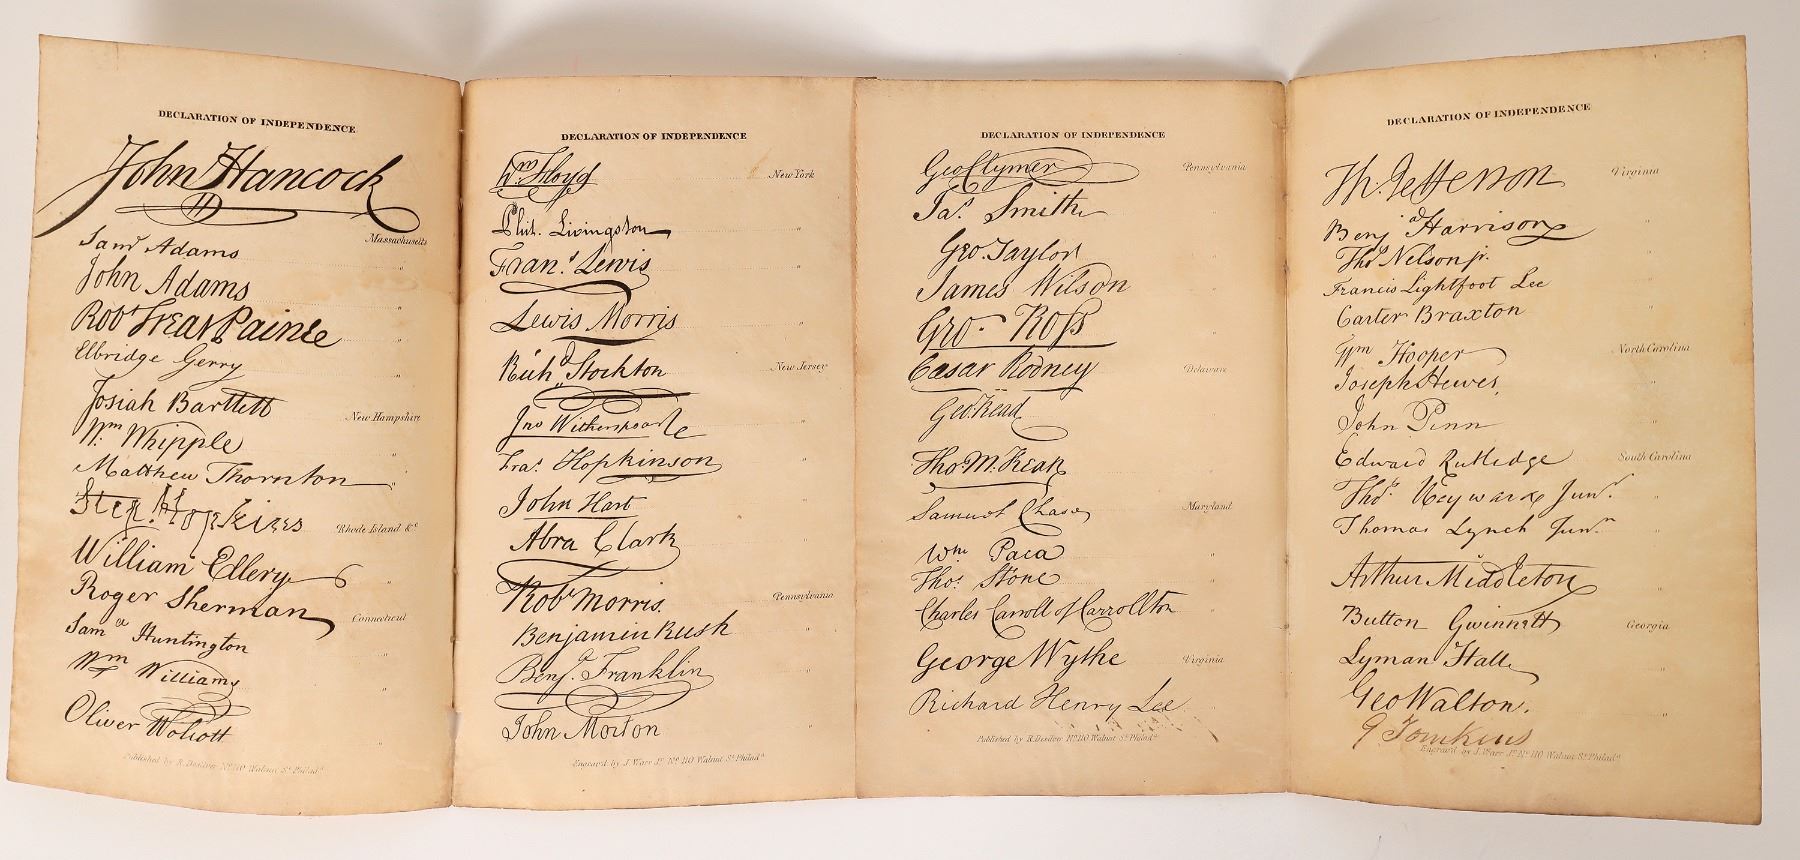 DECLARATION OF INDEPENDENCE
John Hancock
Massachusetts
Saml Adams "
John Adams "
Robt Treat Paine "
Elbridge Gerry "
Josiah Bartlett New Hampshire
Wm Whipple "
Matthew Thornton "
Step. Hopkins Rhode Island &c
William Ellery "
Roger Sherman Connecticut
Saml Huntington "
Wm Williams "
Oliver Wolcott "
Published by R. Desilver No 110 Walnut St Philada
DECLARATION OF INDEPENDENCE
Wm Floyd New York
Phil. Livingston "
Frans Lewis "
Lewis Morris "
Richd Stockton New Jersey
Jno Witherspoon "
Fras Hopkinson "
John Hart "
Abra Clark "
Robt Morris. Pennsylvania
Benjamin Rush "
Benja Franklin "
John Morton "
Engrav'd by J. Warr Jr No 110 Walnut St Philada
DECLARATION OF INDEPENDENCE
Geo Clymer Pennsylvania
Jas Smith "
Geo. Taylor "
James Wilson "
Geo. Ross "
Caesar Rodney Delaware
Geo Read "
Tho M.Kean "
Samuel Chase Maryland
Wm Paca "
Thos Stone "
Charles Carroll of Carrollton "
George Wythe Virginia
Richard Henry Lee "
Published by R. Desilver No 110 Walnut St Philada
DECLARATION OF INDEPENDENCE
Th. Jefferson Virginia
Benja Harrison "
Thos Nelson jr. "
Francis Lightfoot Lee "
Carter Braxton "
Wm Hooper North Carolina
Joseph Hewes, "
John Penn "
Edward Rutledge South Carolina
Thos Heyward Junr. "
Thomas Lynch Junr. "
Arthur Middleton "
Button Gwinnett Georgia
Lyman Hall "
Geo Walton. "
G Tomkins
Engrav'd by J. Warr Jr No 110 Walnut St Philada